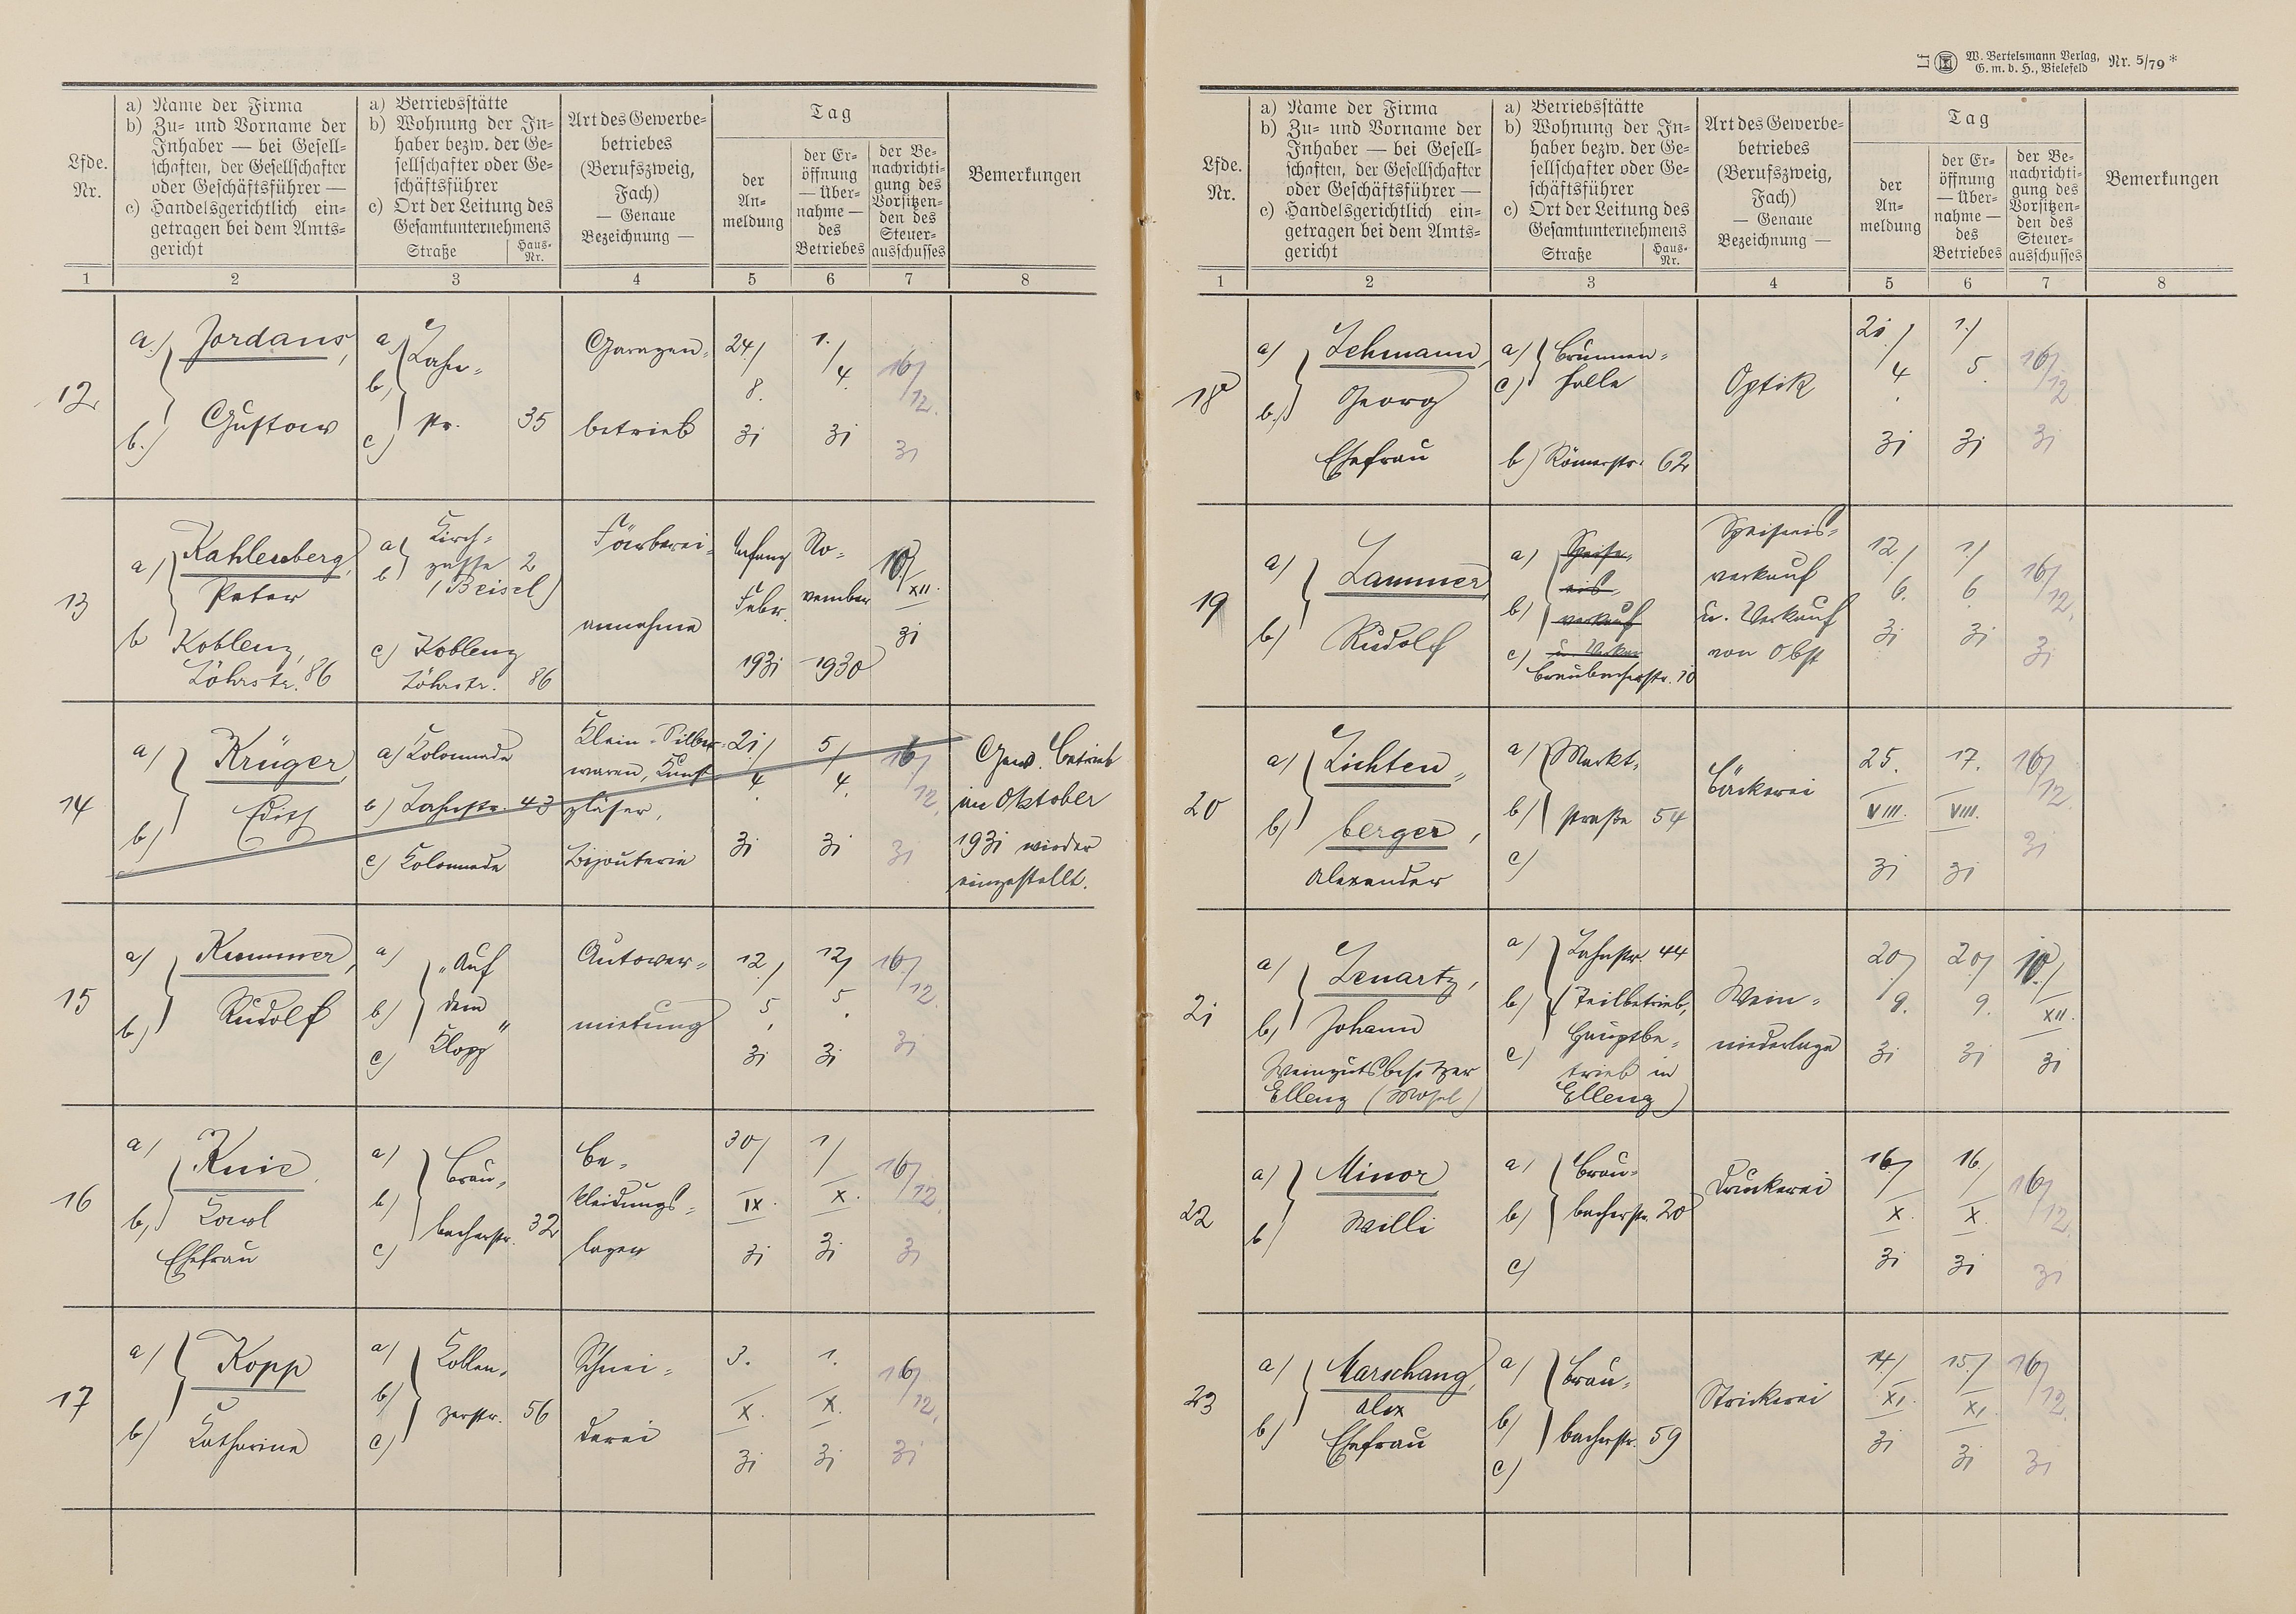 Lfde.
Nr.
a) Name der Firma
b) Zu- und Vorname der
Inhaber — bei Gesell-
schaften, der Gesellschafter
oder Geschäftsführer —
c) Handelsgerichtlich ein-
getragen bei dem Amts-
gericht
a) Betriebsstätte
b) Wohnung der In-
haber bezw. der Ge-
sellschafter oder Ge-
schäftsführer
c) Ort der Leitung des
Gesamtunternehmens
Straße
Haus-
Nr.
Art des Gewerbe-
betriebes
(Berufszweig,
Fach)
— Genaue
Bezeichnung —
Tag
der
An-
meldung
der Er-
öffnung
— Über-
nahme —
des
Betriebes
der Be-
nachrichti-
gung des
Vorsitzen-
den des
Steuer-
ausschusses
Bemerkungen
1 2 3 4 5 6 7 8
12
a.) Jordans,
b.) Gustav
a) b) c) Lahn-
str. 35
Garagen-
betrieb
24./8. 31
1./4. 31
16/12. 31
13
a) Kahlenberg,
Peter
b Koblenz,
Löhrstr. 86
a) b) Kirch-
gasse 2
(Beisel)
c) Koblenz
Löhrstr. 86
Färberei-
annahme
Anfang
Febr.
1931
No-
vember
1930
10/XII. 31
14
a) Krüger,
b) Edith
a) Kolonnade
b) Lahnstr. 43
c) Kolonnade
Klein-Silber-
waren, Kunst
gläser,
Bijouterie
21/4. 31
5/4. 31
16/12. 31
Gew. betrieb
im Oktober
1931 wieder
eingestellt.
15
a) Kummer,
b) Rudolf
a) b) c) "Auf
dem
Klopp"
Autover-
mietung
12/5. 31
12/5. 31
16/12. 31
16
a) Knie
b) Karl
Ehefrau
a) b) c) Brau-
bacherstr. 32
Be-
kleidungs-
lager
30/IX. 31
1/X. 31
16/12. 31
17
a) Kopp
b) Katharina
a) b) c) Kollen-
zerstr. 56
Schnei-
derei
3. X. 31
1. X. 31
16/12. 31
W. Bertelsmann Verlag,
G. m. b. H., Bielefeld
Nr. 5/79*
Lfde.
Nr.
a) Name der Firma
b) Zu- und Vorname der
Inhaber — bei Gesell-
schaften, der Gesellschafter
oder Geschäftsführer —
c) Handelsgerichtlich ein-
getragen bei dem Amts-
gericht
a) Betriebsstätte
b) Wohnung der In-
haber bezw. der Ge-
sellschafter oder Ge-
schäftsführer
c) Ort der Leitung des
Gesamtunternehmens
Straße
Haus-
Nr.
Art des Gewerbe-
betriebes
(Berufszweig,
Fach)
— Genaue
Bezeichnung —
Tag
der
An-
meldung
der Er-
öffnung
— Über-
nahme —
des
Betriebes
der Be-
nachrichti-
gung des
Vorsitzen-
den des
Steuer-
ausschusses
Bemerkungen
1 2 3 4 5 6 7 8
18
a) Lehmann,
b) Georg
Ehefrau
a) c) Brunnen-
halle
b) Römerstr. 62
Optik
21./4. 31
1./5. 31
16/12 31
19
a) Lammer,
b) Rudolf
a) Speise-
eis-
b) verkauf
c) u. Verkau
Braubacherstr. 10
Speiseeis-
verkauf
u. Verkauf
von Obst
12./6. 31
1./6. 31
16/12. 31
20
a) Lichten-
b) berger,
Alexander
a) Markt-
b) straße 54
c)
Bäckerei
25. VIII. 31
17. VIII. 31
16/12. 31
21
a) Lenartz,
b) Johann
Weingutsbesitzer
Ellenz (Mosel)
a) Lahnstr. 44
b) (Teilbetrieb,
Hauptbe-
c) trieb in
Ellenz)
Wein-
niederlage
20/9. 31
20/9. 31
10./XII. 31
22
a) Minor
b) Willi
a) Brau-
b) bacherstr. 20
c)
Druckerei
16/X. 31
16/X. 31
16/12. 31
23
a) Marschang,
Alex
b) Ehefrau
a) Brau-
b) bacherstr. 59
c)
Strickerei
14/XI. 31
15./XI. 31
16/12. 31